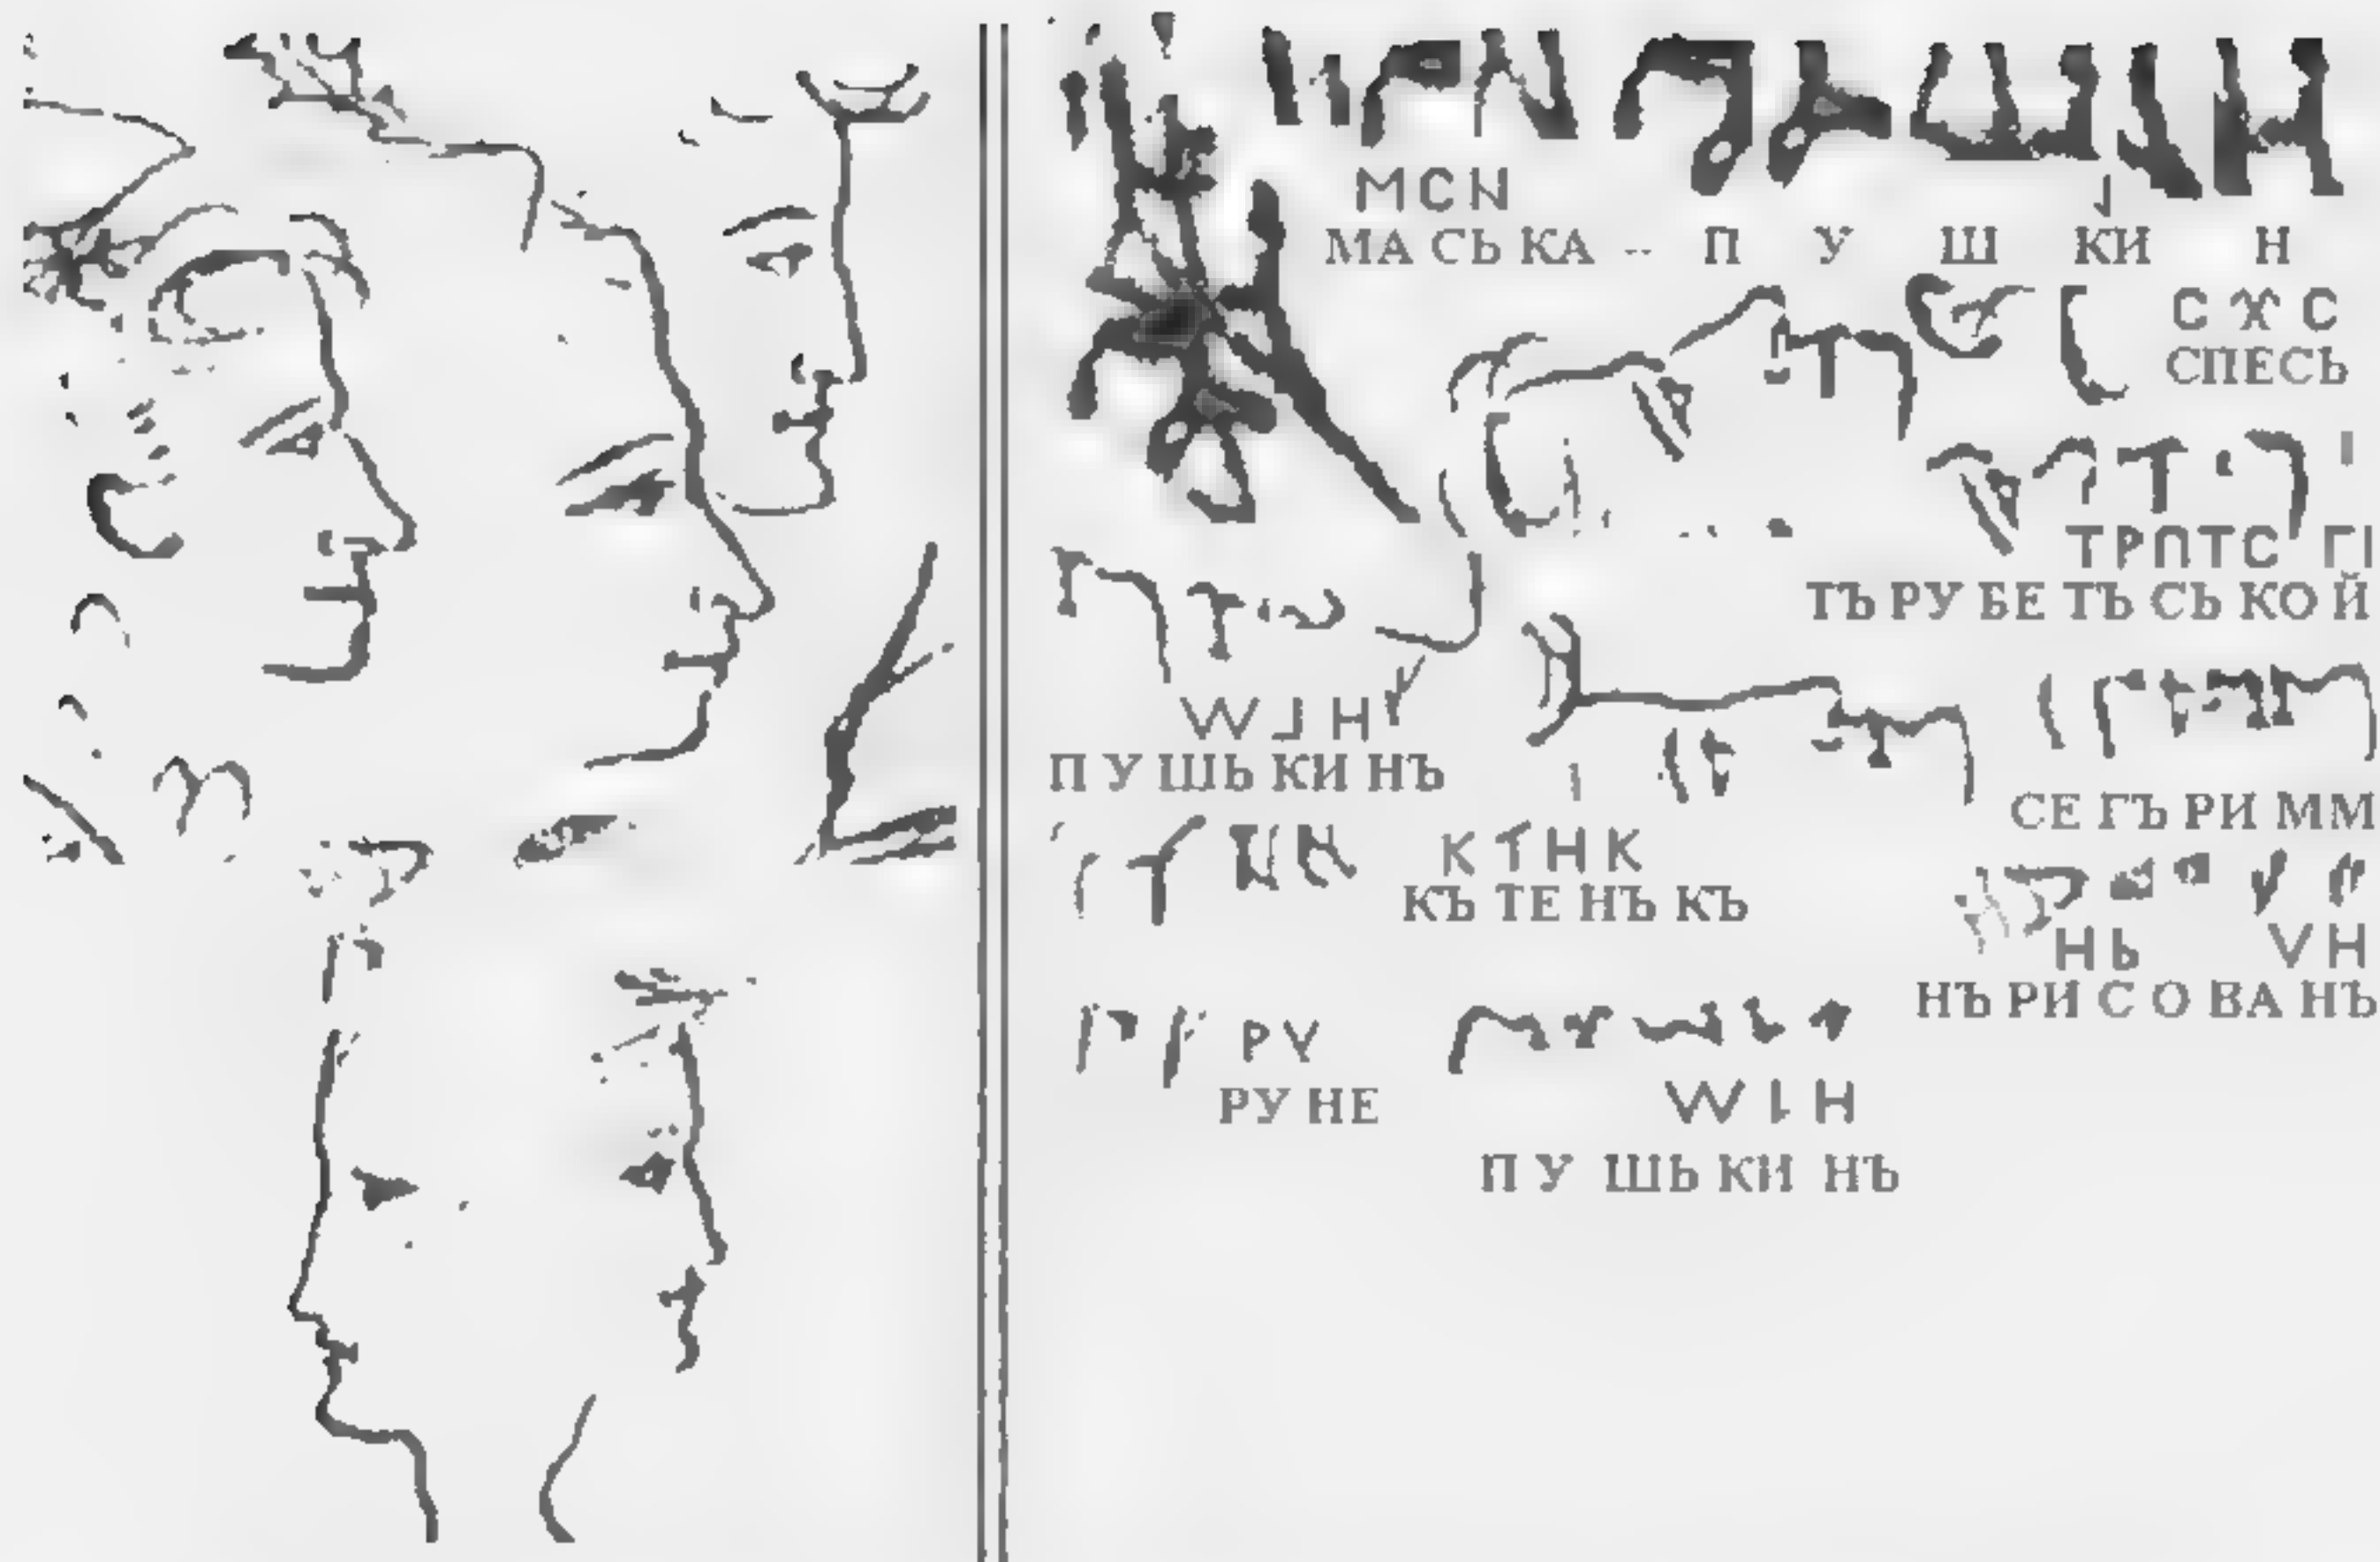 МСИ
МАСЬКА -- ПУШКИН
СХС
СПЕСЬ
ТРПТС ГІ
ТЪРУБЕТЬСЬКОЙ
ПУШЬКИНЪ
СЕГЪРИММ
КТНК
КЪТЕНЬКЪ
НЬ VН
НЪРИСОВАНЪ
РУ
РУНЕ
ПУШЬКИНЪ